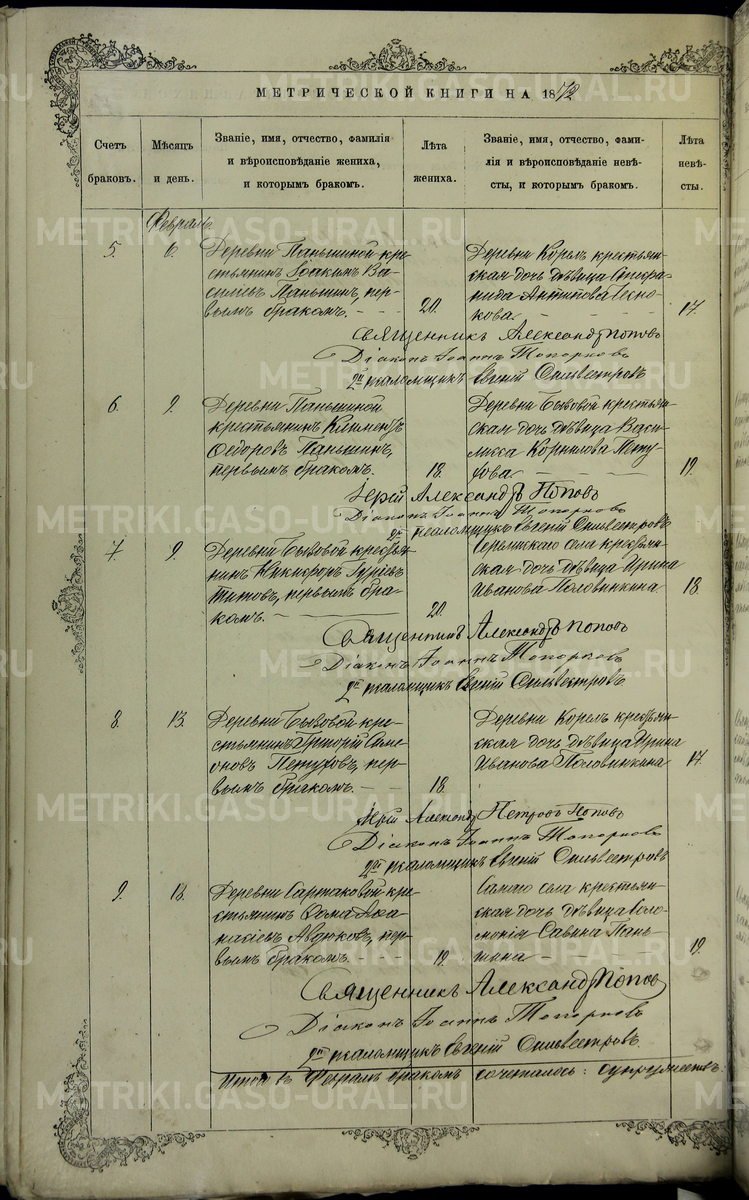 МЕТРИЧЕСКОЙ КНИГИ НА 1872
Счетъ браковъ.
Мѣсяцъ и день.
Званіе, имя, отчество, фамилія и вѣроисповѣданіе жениха, и которымъ бракомъ.
Лѣта жениха.
Званіе, имя, отчество, фамилія и вѣроисповѣданіе невѣсты, и которымъ бракомъ.
Лѣта невѣсты.
Февраль
5. 6.
Деревни Паньшиной кре-
стьянинъ Іоакимъ Ва-
сильевъ Паньшинъ, пер-
вымъ бракомъ. 20.
Деревни Корелъ крестьян-
ская дочь дѣвица Стефа-
нида Антипова
кова 17.
Священникъ Александръ Поповъ
Діаконъ Іоаннъ Топорковъ
псаломщикъ Евгеній Сильвестровъ
6. 9.
Деревни Паньшиной
крестьянинъ Климентъ
Ѳедоровъ Паньшинъ,
первымъ бракомъ. 18.
Деревни Бывовой крестьян-
ская дочь дѣвица Васи-
лисса Корнилова Пету-
хова 19.
Іерей Александръ Поповъ
Діаконъ Іоаннъ Топорковъ
псаломщикъ Евгеній Сильвестровъ
7. 9.
Деревни Бывовой крестья-
нинъ Никифоръ Гурьевъ
Титовъ, первымъ бра-
комъ. 20.
села крестьян-
ская дочь дѣвица Ирина
Иванова Половинкина 18.
Священникъ Александръ Поповъ
Діаконъ Іоаннъ Топорковъ
псаломщикъ Евгеній Сильвестровъ
8. 13.
Деревни Бывовой кре-
стьянинъ Григорій Симе-
оновъ Петуховъ, пер-
вымъ бракомъ. 18.
Деревни Корелъ крестьян-
ская дочь дѣвица Ирина
Иванова Половинкина 17.
Іерей Александръ Петровъ Поповъ
Діаконъ Іоаннъ Топорковъ
псаломщикъ Евгеній Сильвестровъ
9. 13.
Деревни Сартаковой кре-
стьянинъ Ѳома Аѳа-
насіевъ Авдюковъ, пер-
вымъ бракомъ. 19.
Самаго села крестьян-
ская дочь дѣвица Соло-
монія Савина Пань-
шина 19.
Священникъ Александръ Поповъ
Діаконъ Іоаннъ Топорковъ
псаломщикъ Евгеній Сильвестровъ
Итого въ Февралѣ бракомъ сочеталось: супружествъ:
METRIKI.GASO-URAL.RU